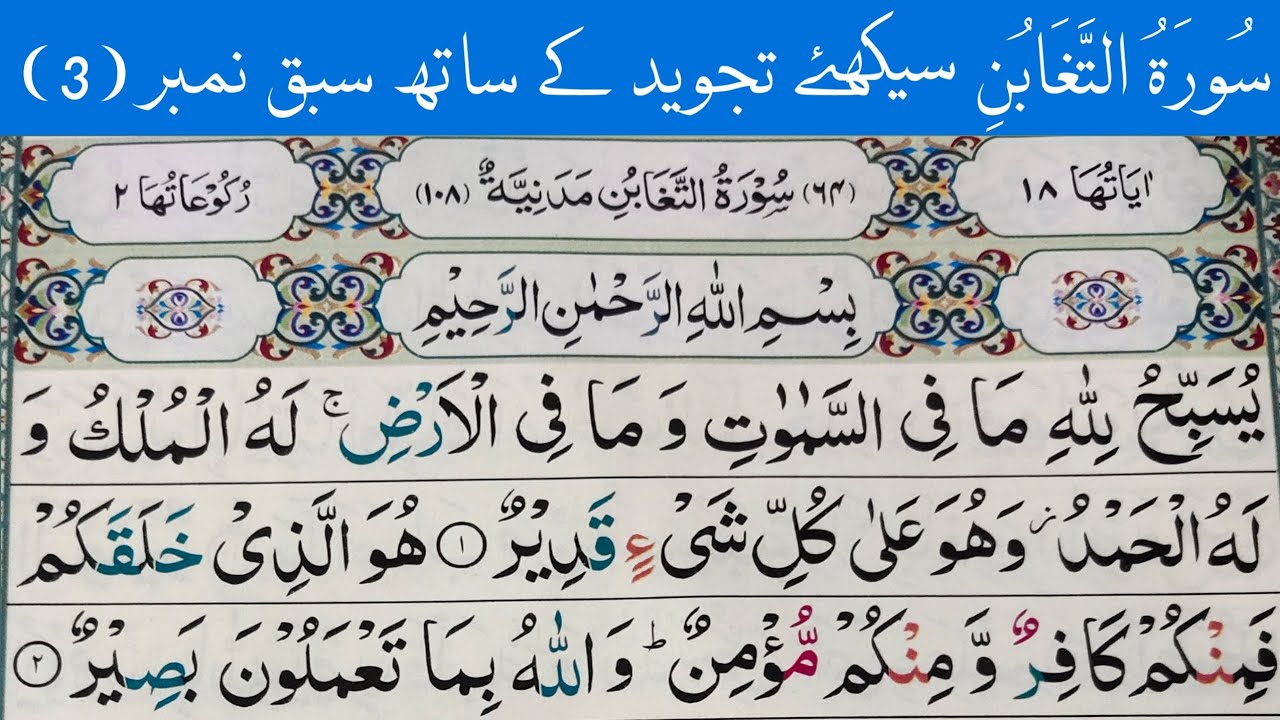 سُورَةُ التَّغَابُنِ سیکھئے تجوید کے ساتھ سبق نمبر (3)
اٰیَاتُهَا ١٨
(٦٤) سُوْرَةُ التَّغَابُنِ مَدَنِيَّةٌ (١٠٨)
رُكُوْعَاتُهَا ٢
بِسْمِ اللّٰهِ الرَّحْمٰنِ الرَّحِيْمِ
يُسَبِّحُ لِلّٰهِ مَا فِى السَّمٰوٰتِ وَ مَا فِى الْاَرْضِ ۚ لَهُ الْمُلْكُ وَ
لَهُ الْحَمْدُ ؗ وَهُوَ عَلٰى كُلِّ شَىْءٍ قَدِيْرٌ ١ هُوَ الَّذِىْ خَلَقَكُمْ
فَمِنْكُمْ كَافِرٌ وَّ مِنْكُمْ مُّؤْمِنٌ ؕ وَ اللّٰهُ بِمَا تَعْمَلُوْنَ بَصِيْرٌ ٢